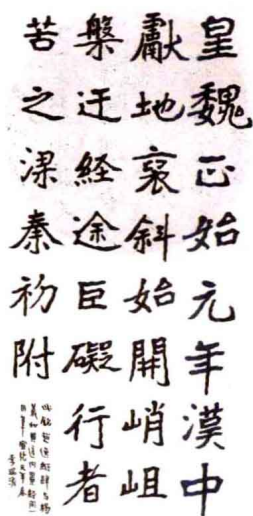 皇魏正始元年漢中
獻地裒斜始開峭岨
槃迂経途巨礙行者
苦之梁秦初附